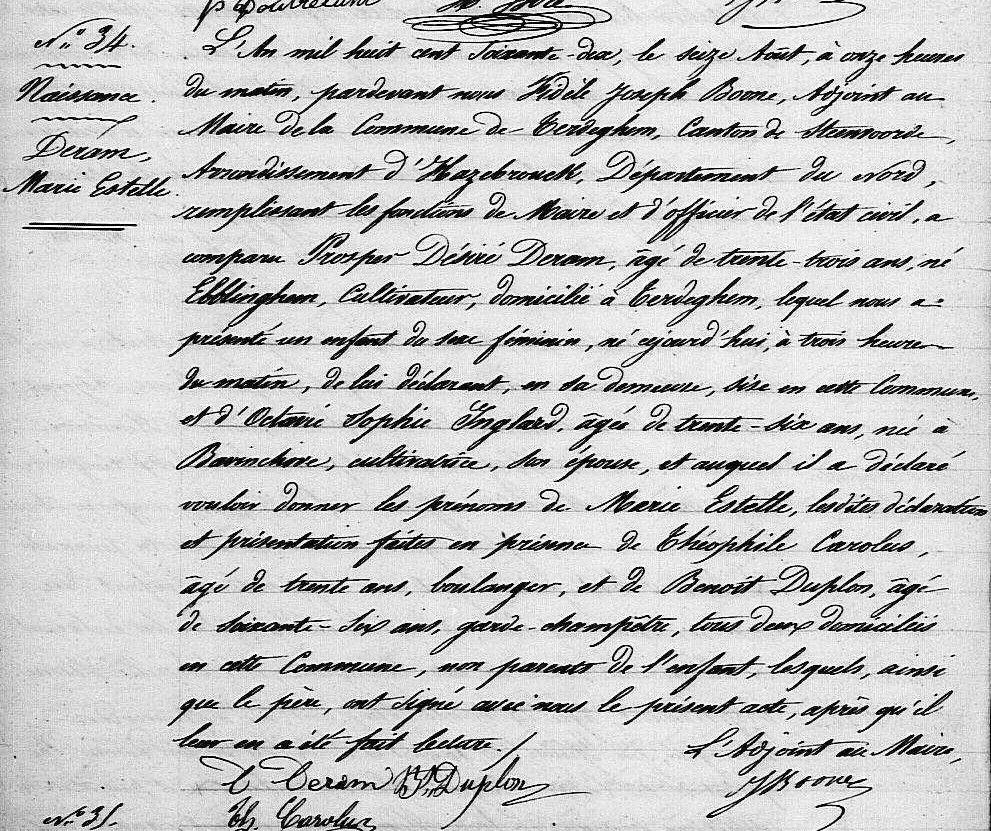 N.° 34.
Naissance.
Deram,
Marie Estelle.
L'An mil huit cent soixante-dix, le seize Août, à onze heures
du matin, pardevant nous Fidèle Joseph Boone, Adjoint au
Maire de la Commune de Terdeghem, Canton de Steenvoorde,
Arrondissement d'Hazebrouck, Département du Nord,
remplissant les fonctions de Maire et d'officier de l'état civil, a
comparu Prosper Désiré Deram, âgé de trente-trois ans, né
Ebblinghem, Cultivateur, domicilié à Terdeghem, lequel nous a
présenté un enfant du sexe féminin, né aujourd'hui, à trois heures
du matin, de lui déclarant, en sa demeure, sise en cette Commune,
et d'Octavie Sophie Inglard, âgée de trente-six ans, née à
Bavinchove, cultivatrice, son épouse, et auquel il a déclaré
vouloir donner les prénoms de Marie Estelle, lesdites déclaration
et présentation faites en présence de Théophile Carolus,
âgé de trente ans, boulanger, et de Benoît Duplon, âgé
de soixante-six ans, garde-champêtre, tous deux domiciliés
en cette Commune, non parents de l'enfant, lesquels, ainsi
que le père, ont signé avec nous le présent acte, après qu'il
leur en a été fait lecture./
L'Adjoint au Maire,
Deram Bt Duplon
FJBoone
Th. Carolus
N.° 35.